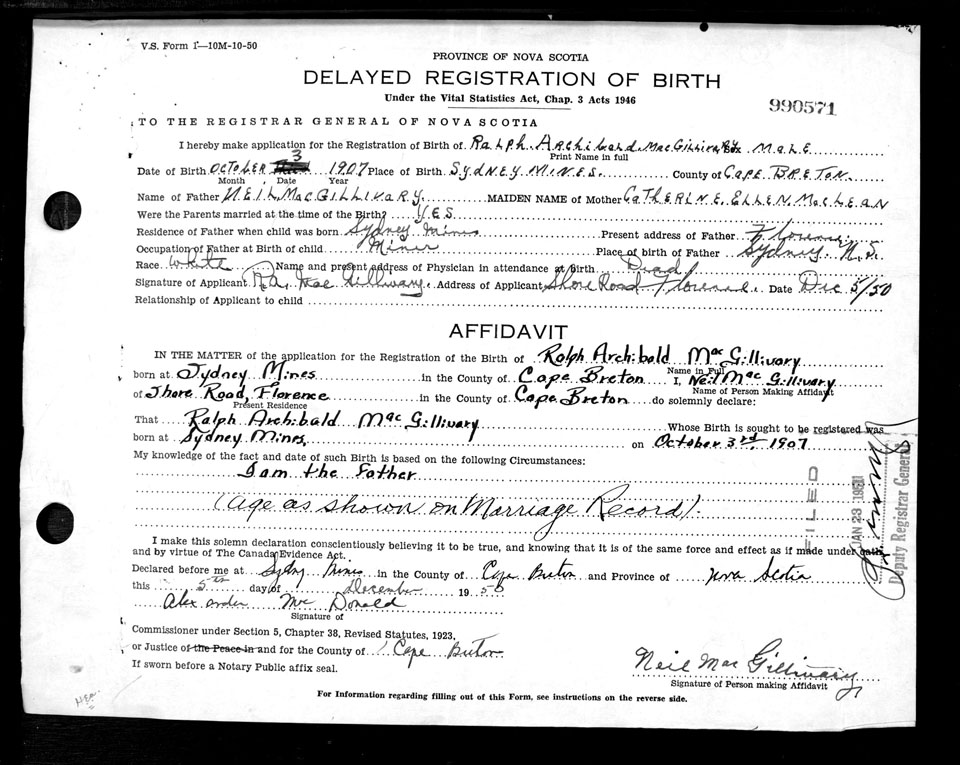 V.S. Form 1—10M-10-50
PROVINCE OF NOVA SCOTIA
DELAYED REGISTRATION OF BIRTH
Under the Vital Statistics Act, Chap. 3 Acts 1946
990571
TO THE REGISTRAR GENERAL OF NOVA SCOTIA
I hereby make application for the Registration of Birth of Ralph Archibald MacGillivary Sex Male
Print Name in full
Date of Birth October 3 1907 Place of Birth Sydney Mines. County of Cape Breton.
Month Date Year
Name of Father Neil MacGillivary. MAIDEN NAME of Mother Catherine Ellen MacLean
Were the Parents married at the time of the Birth? Yes
Residence of Father when child was born Sydney Mines Present address of Father Florence.
Occupation of Father at Birth of child Miner Place of birth of Father Sydney N.S.
Race White Name and present address of Physician in attendance at Birth Dead
Signature of Applicant R.A. MacGillivary. Address of Applicant Shore Road Florence. Date Dec 5/50
Relationship of Applicant to child
AFFIDAVIT
IN THE MATTER of the application for the Registration of the Birth of Ralph Archibald MacGillivary
Name in Full
born at Sydney Mines in the County of Cape Breton I, Neil MacGillivary
Name of Person Making Affidavit
of Shore Road, Florence in the County of Cape Breton do solemnly declare:
Present Residence
That Ralph Archibald MacGillivary Whose Birth is sought to be registered was
born at Sydney Mines, on October 3rd, 1907
My knowledge of the fact and date of such Birth is based on the following Circumstances:
I am the Father
(age as shown on Marriage Record).
FILED
JAN 23 1951
Deputy Registrar General
I make this solemn declaration conscientiously believing it to be true, and knowing that it is of the same force and effect as if made under oath
and by virtue of The Canada Evidence Act.
Declared before me at Sydney Mines in the County of Cape Breton and Province of Nova Scotia
this 5th day of December 1950
Alexander MacDonald
Signature of
Commissioner under Section 5, Chapter 38, Revised Statutes, 1923,
or Justice of the Peace in and for the County of Cape Breton
If sworn before a Notary Public affix seal.
Neil MacGillivary
Signature of Person making Affidavit
For Information regarding filling out of this Form, see instructions on the reverse side.